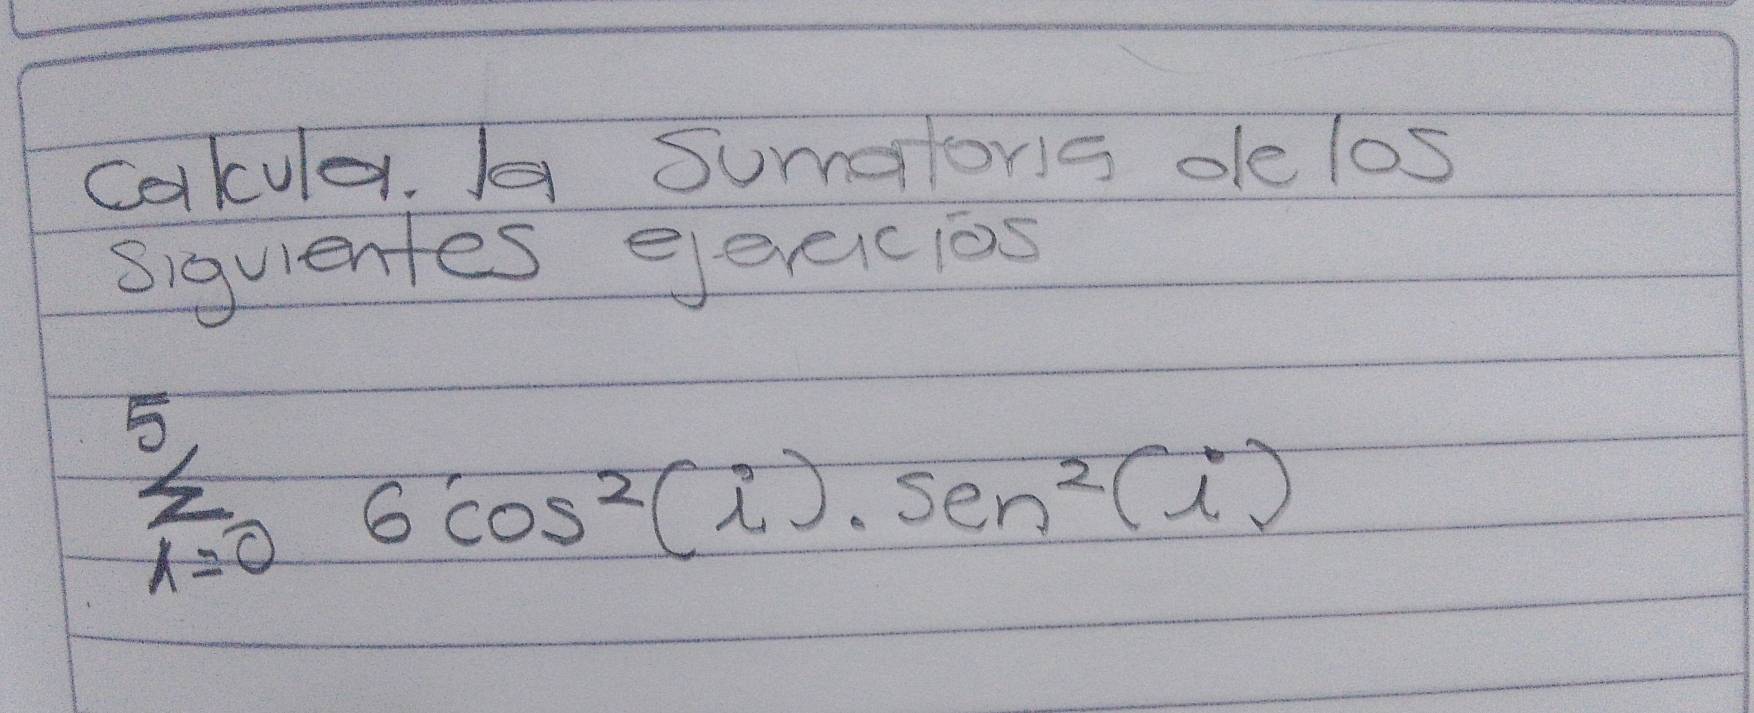 Calcula. la Sumatoria de los
Siguientes ejercicios
5
Σ 6 cos²(i). sen²(i)
i=0